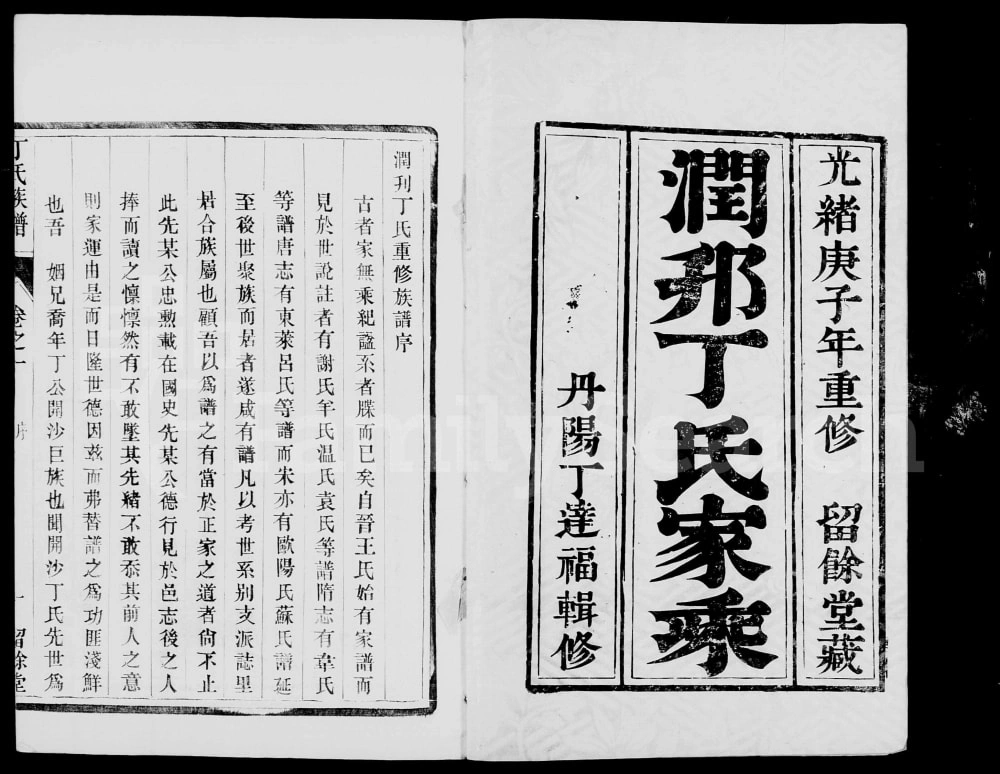 光緒庚子年重修 留餘堂藏
潤邦丁氏家乘
丹陽丁達福輯修
潤邦丁氏重修族譜序
古者家無乘紀諡系者牒而已矣自晉王氏始有家譜而
見於世說註者有謝氏羊氏温氏袁氏等譜隋志有韋氏
等譜唐志有東萊呂氏等譜而宋亦有歐陽氏蘇氏譜延
至後世聚族而居者遂咸有譜凡以考世系别支派誌里
居合族屬也顧吾以爲譜之有當於正家之道者尙不止
此先某公忠勲載在國史先某公德行見於邑志後之人
捧而讀之懍懍然有不敢墜其先緒不敢忝其前人之意
則家運由是而日隆世德因玆而弗替譜之爲功匪淺鮮
也吾 姻兄喬年丁公開沙巨族也聞開沙丁氏先世爲
丁氏族譜 卷之一 序 一 留餘堂